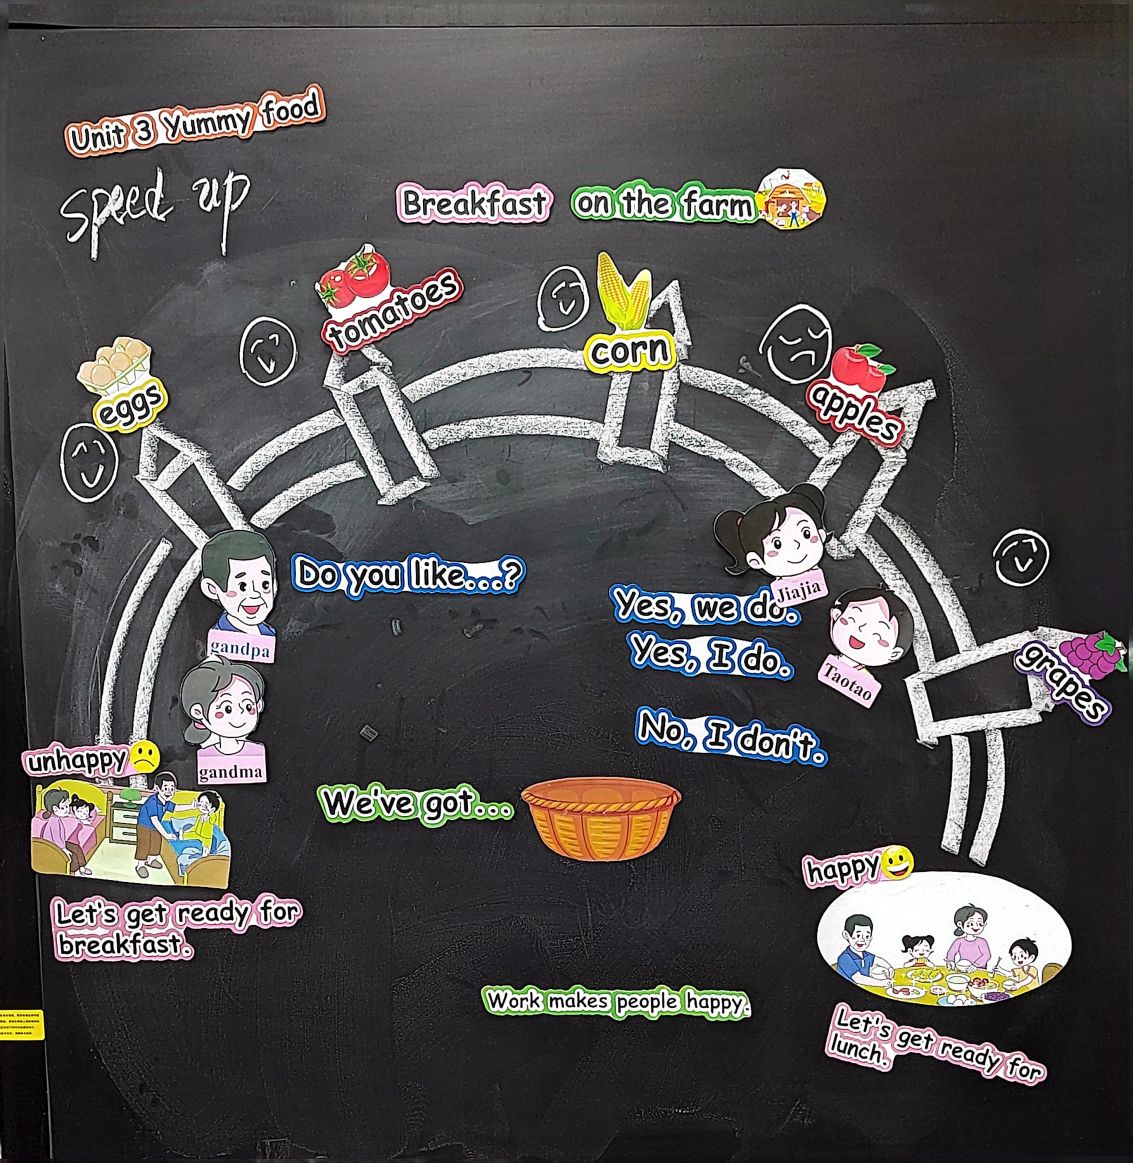 Unit 3 Yummy food
speed up
Breakfast on the farm
tomatoes
corn
eggs
apples
grapes
Do you like...?
gandpa
gandma
Jiajia
Taotao
Yes, we do.
Yes, I do.
No, I don't.
unhappy
We've got...
happy
Let's get ready for
breakfast.
Work makes people happy.
Let's get ready for
lunch.